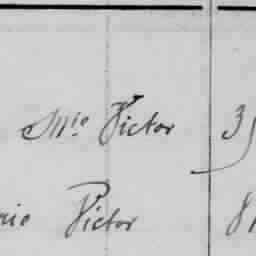 Mle Victor 35
nie Victor 8